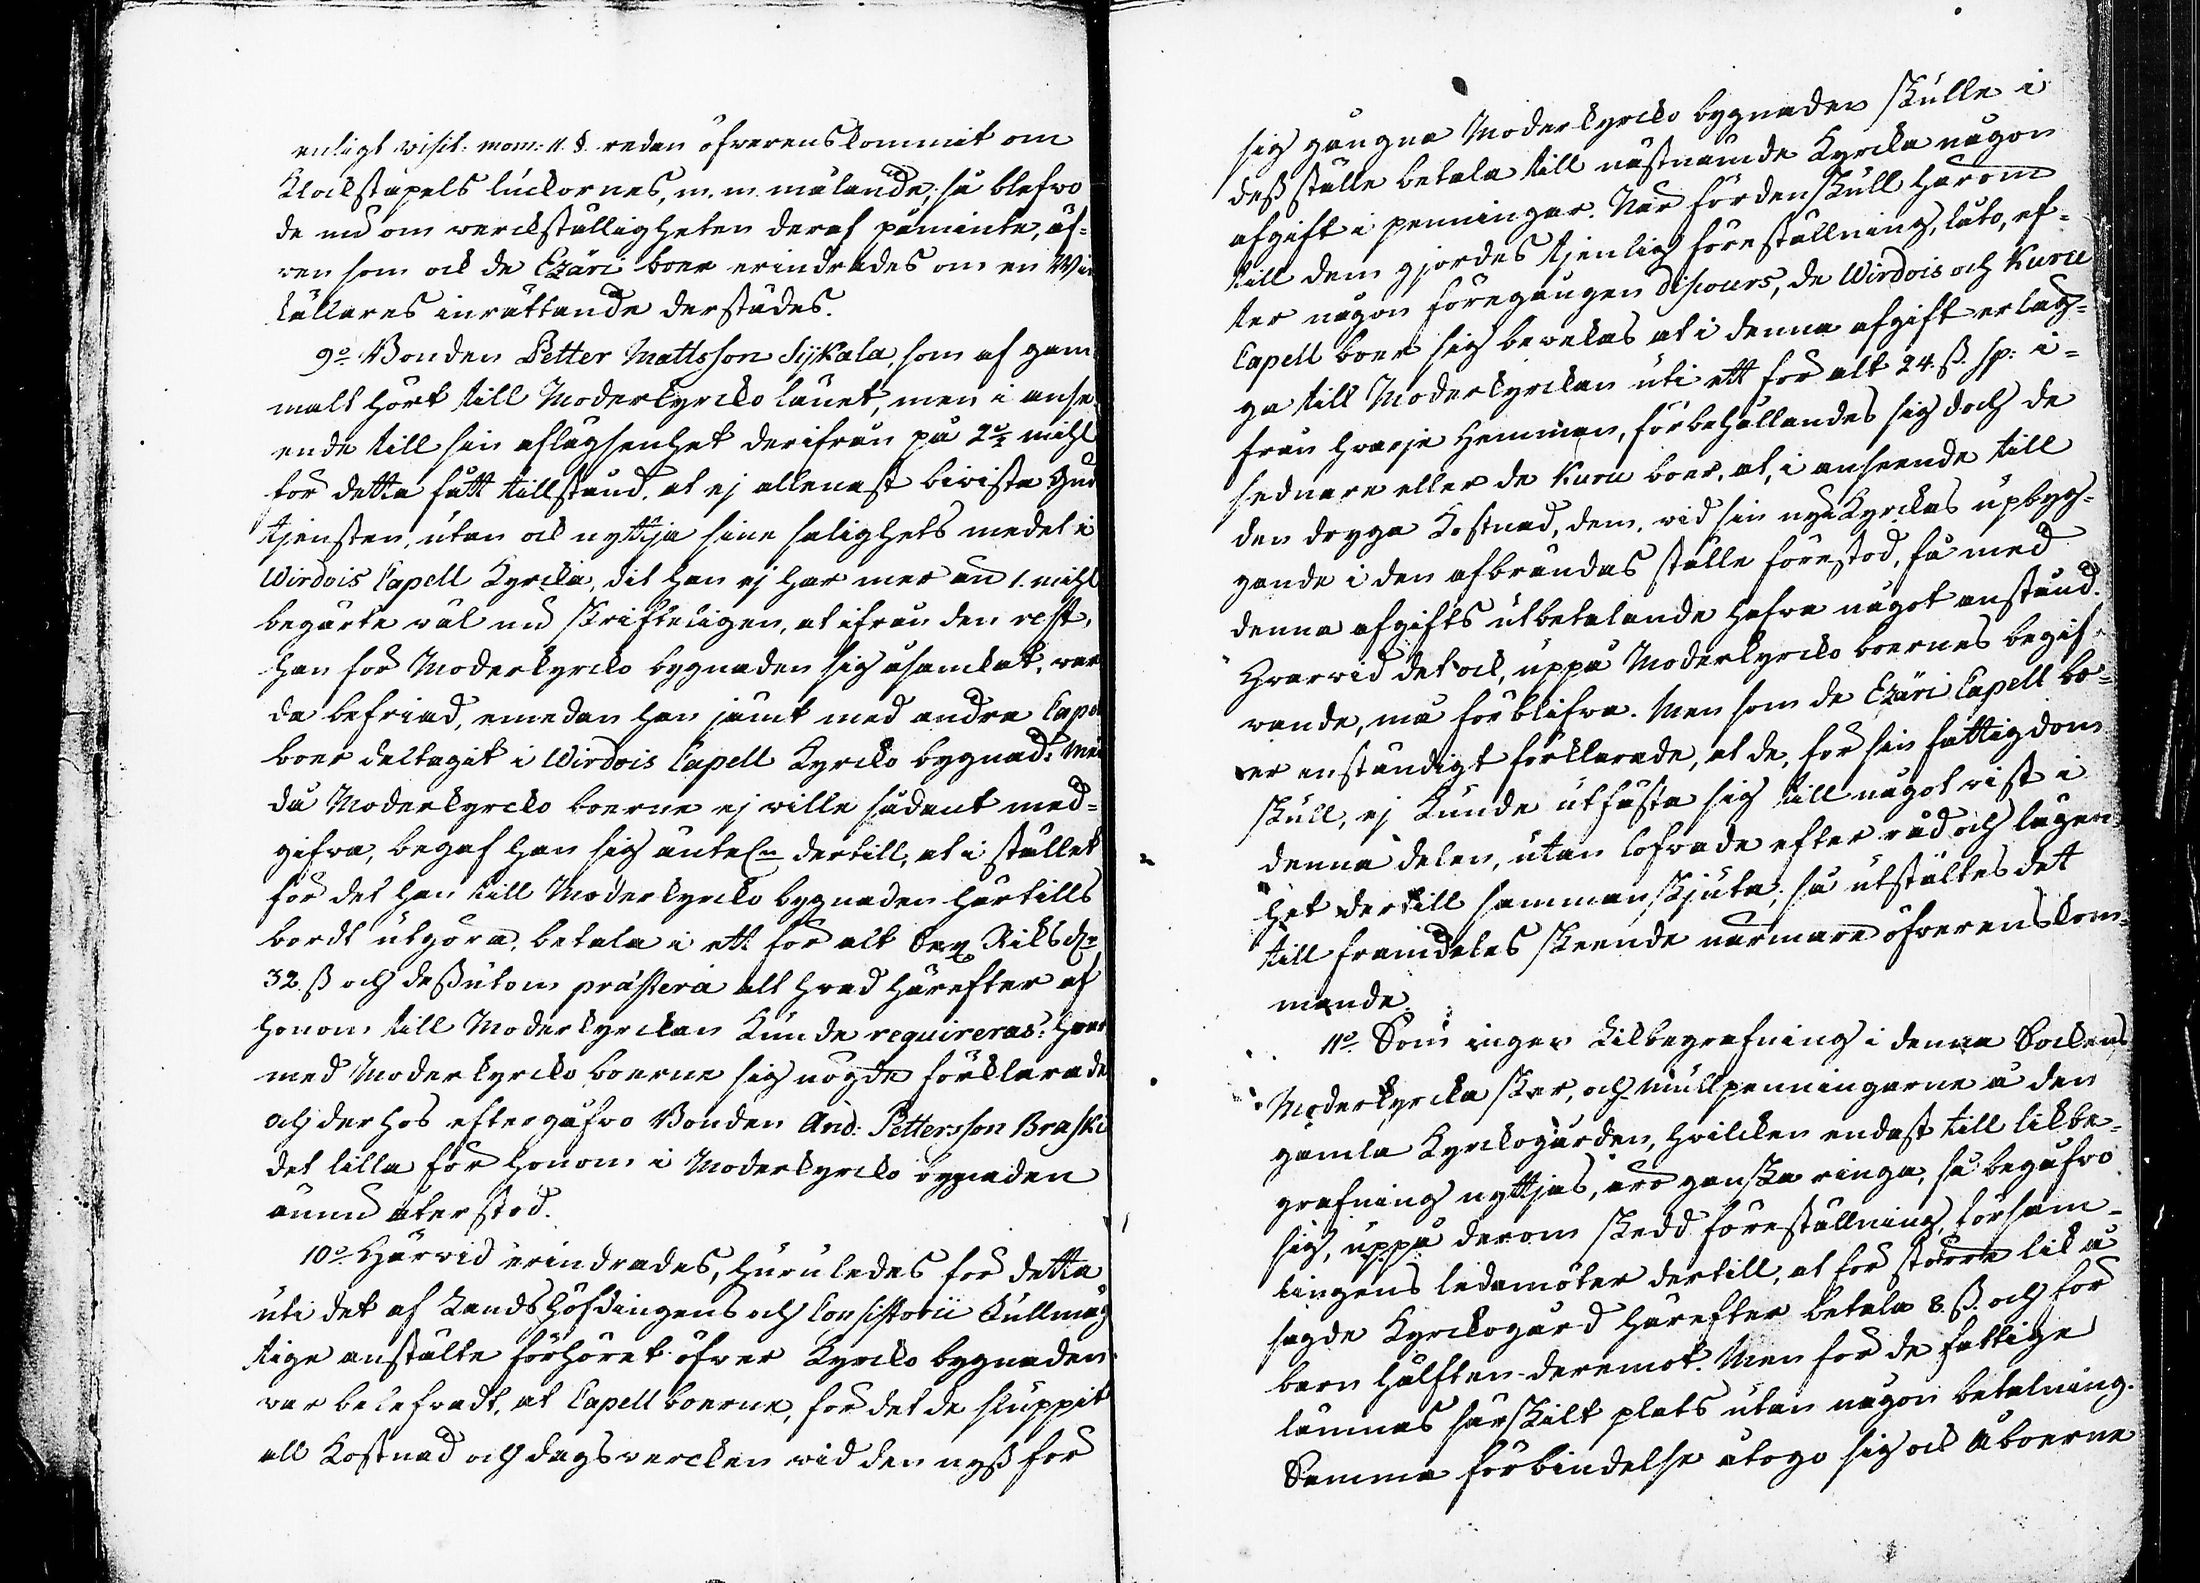 enligt visit: mom: 11. §. redan öfverenskommit om
Klockstapels luckornes, m. m. målande; så blefwo
de nu om werckställigheten deraf påminte, äf-
ven som ock de Ezäri boer erindrades om en Win
källares inrättande derstädes.
9:o Bonden Petter Mattsson Sijkala, som af gam
malt hört till Moderkyrcko lauet, men i anse
ende till sin aflägsenhet derifrån på 2 mihl
för detta fått tillstånd, at ej allenast bivista Gud
tjensten, utan ock nyttja sine salighets medel i
Wirdois Capell Kyrcka, dit han ej har mer än 1. mihl
begärte wäl nu skrifteligen, at ifrån den rest,
han för Moderkyrcko bygnaden sig åsamkat, war
da befriad, emedan han jämt med andra Capell
boer deltagit i Wirdois Capell Kyrcko bygnad: Men
då Moderkyrcko boerne ej wille sådant med-
gifva, begaf han sig dertill, at i stället
för det han till Moderkyrcko bygnaden härtills
bordt utgöra, betala i ett för alt Sex Riksd:r
32 ß och dessutom prästera alt hvad härefter af
honom till Moderkyrckan kunde requireras: hvar
med Moderkyrcko boerne sig nögde förklarade
och derhos eftergåfvo Bonden And: Pettersson Braski
det lilla för honom i Moderkyrcko bygnaden
ännu återstod.
10:o Härvid erindrades, huruledes för detta
uti det af Landshöfdingens och Consistorii fullmäg
tige anstälte förhöret öfver Kyrcko bygnaden
var belefvadt, at Capellboerne, för det de sluppit
all kostnad och dagsvercken wid den nyß för
sig gångna Moderkyrcko bygnaden skulle i
deß ställe betala till nästnämde Kyrcka någon
afgift i penningar. När fördenskull härom
till dem gjordes tjenlig föreställning, läto, ef-
ter någon föregången discours, de Wirdois och Kuru
Capell boer sig bevekas at i denna afgift erläg-
ga till Moderkyrckan uti ett för alt 24. ß. sp: i-
från hvarje Hemman, förbehållandes sig doch de
sednare eller de Kuru boer, at, i anseende till
den dryga kostnad, dem, vid sin nya Kyrckas upbyg-
gande i den afbrändas ställe förestod, få med
denna afgifts utbetalande hafva något anstånd.
Hvarvid det ock, uppå Moderkyrcko boernes begif-
vande, må förblifva. Men som de Ezäri Capell bo-
er enständigt förklarade, at de, för sin fattigdom
skull, ej kunde utfästa sig till något vist i
denna delen, utan lofvade efter råd och lägen-
het dertill sammanskjuta; så utstältes det
till framdeles skeende närmare öfverenskom-
mande.
11:o Som ingen Likbegrafning i denna Sockens
Moderkyrcka sker, och mullpenningarne å den
gamla Kyrckogården, hvilcken endast till likbe-
grafning nyttjas, äro ganska ringa, så begåfvo
sig, uppå derom skedd föreställning, försam-
lingens ledamöter dertill, at för större lik å
sagde Kyrckogård härefter betala 8. ß. och för
barn hälften deremot. Men för de fattige
lämnas särskilt plats utan någon betalning.
Samma förbindelse åtogo sig ock Åboerne